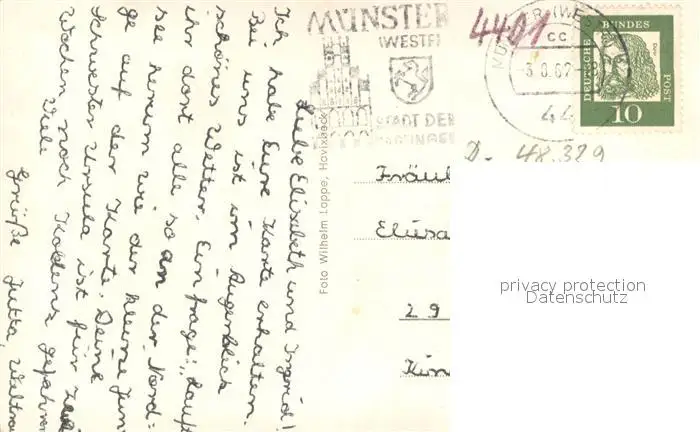 Liebe Elisabeth und Ingrid!
Ich habe Eure Karte erhalten.
Bei uns ist im Augenblick
schönes Wetter. Eine Frage: „Lauft
ihr dort alle so an der Nord=
see herum wie der kleine Jun
ge auf der Karte. Deine
Schwester Ursula ist für zwei
Wochen nach Koblenz gefahren
Viele
Grüße Jutta, Waltra
Foto Wilhelm Lappe, Havixbeck
MÜNSTER
(WESTF)
STADT DER
4401
MÜNSTER (WEST
cc
-3.8.62
44
DEUTSCHE BUNDES POST
Dürer
10
D. 48.329
Fräul
Elisa
29
Kin
privacy protection
Datenschutz